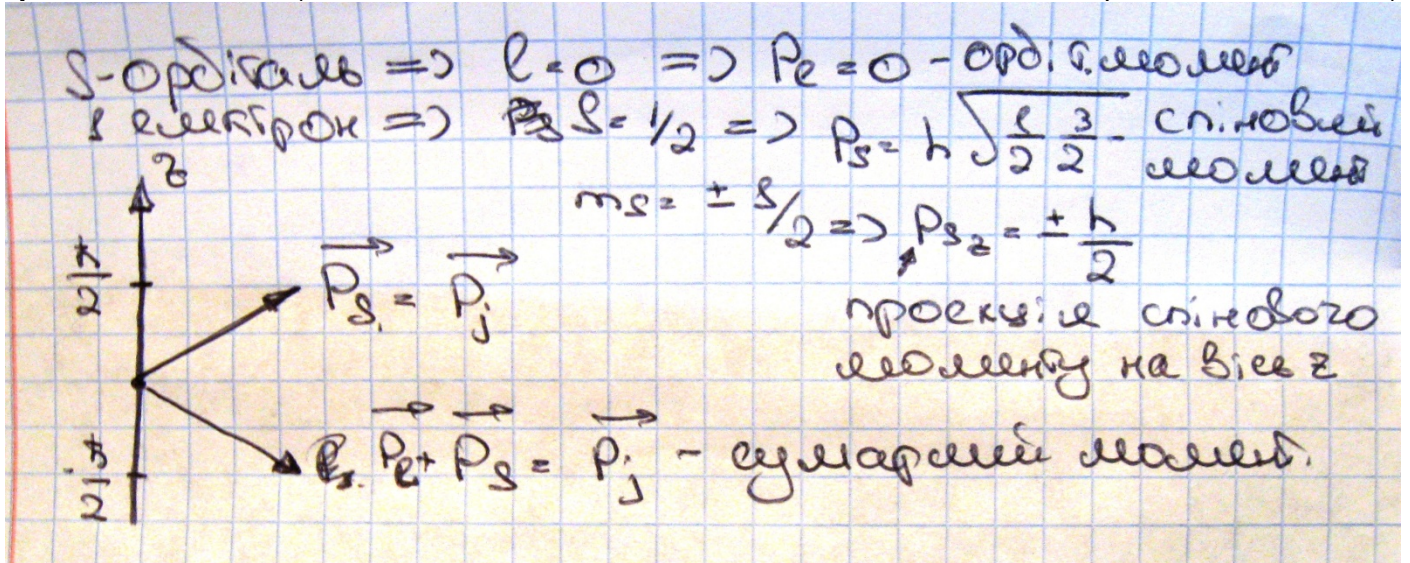 S-орбіталь => l=0 => Pe=0 - орбіт. момент
1 електрон => S=1/2 => Ps = h √(1/2 3/2) - спіновий
момент
z
ms = ± 1/2 => Psz = ± h/2
ħ/2
Ps = Pj
проекція спінового
моменту на вісь z
-ħ/2
Pe + Ps = Pj - сумарний момент.